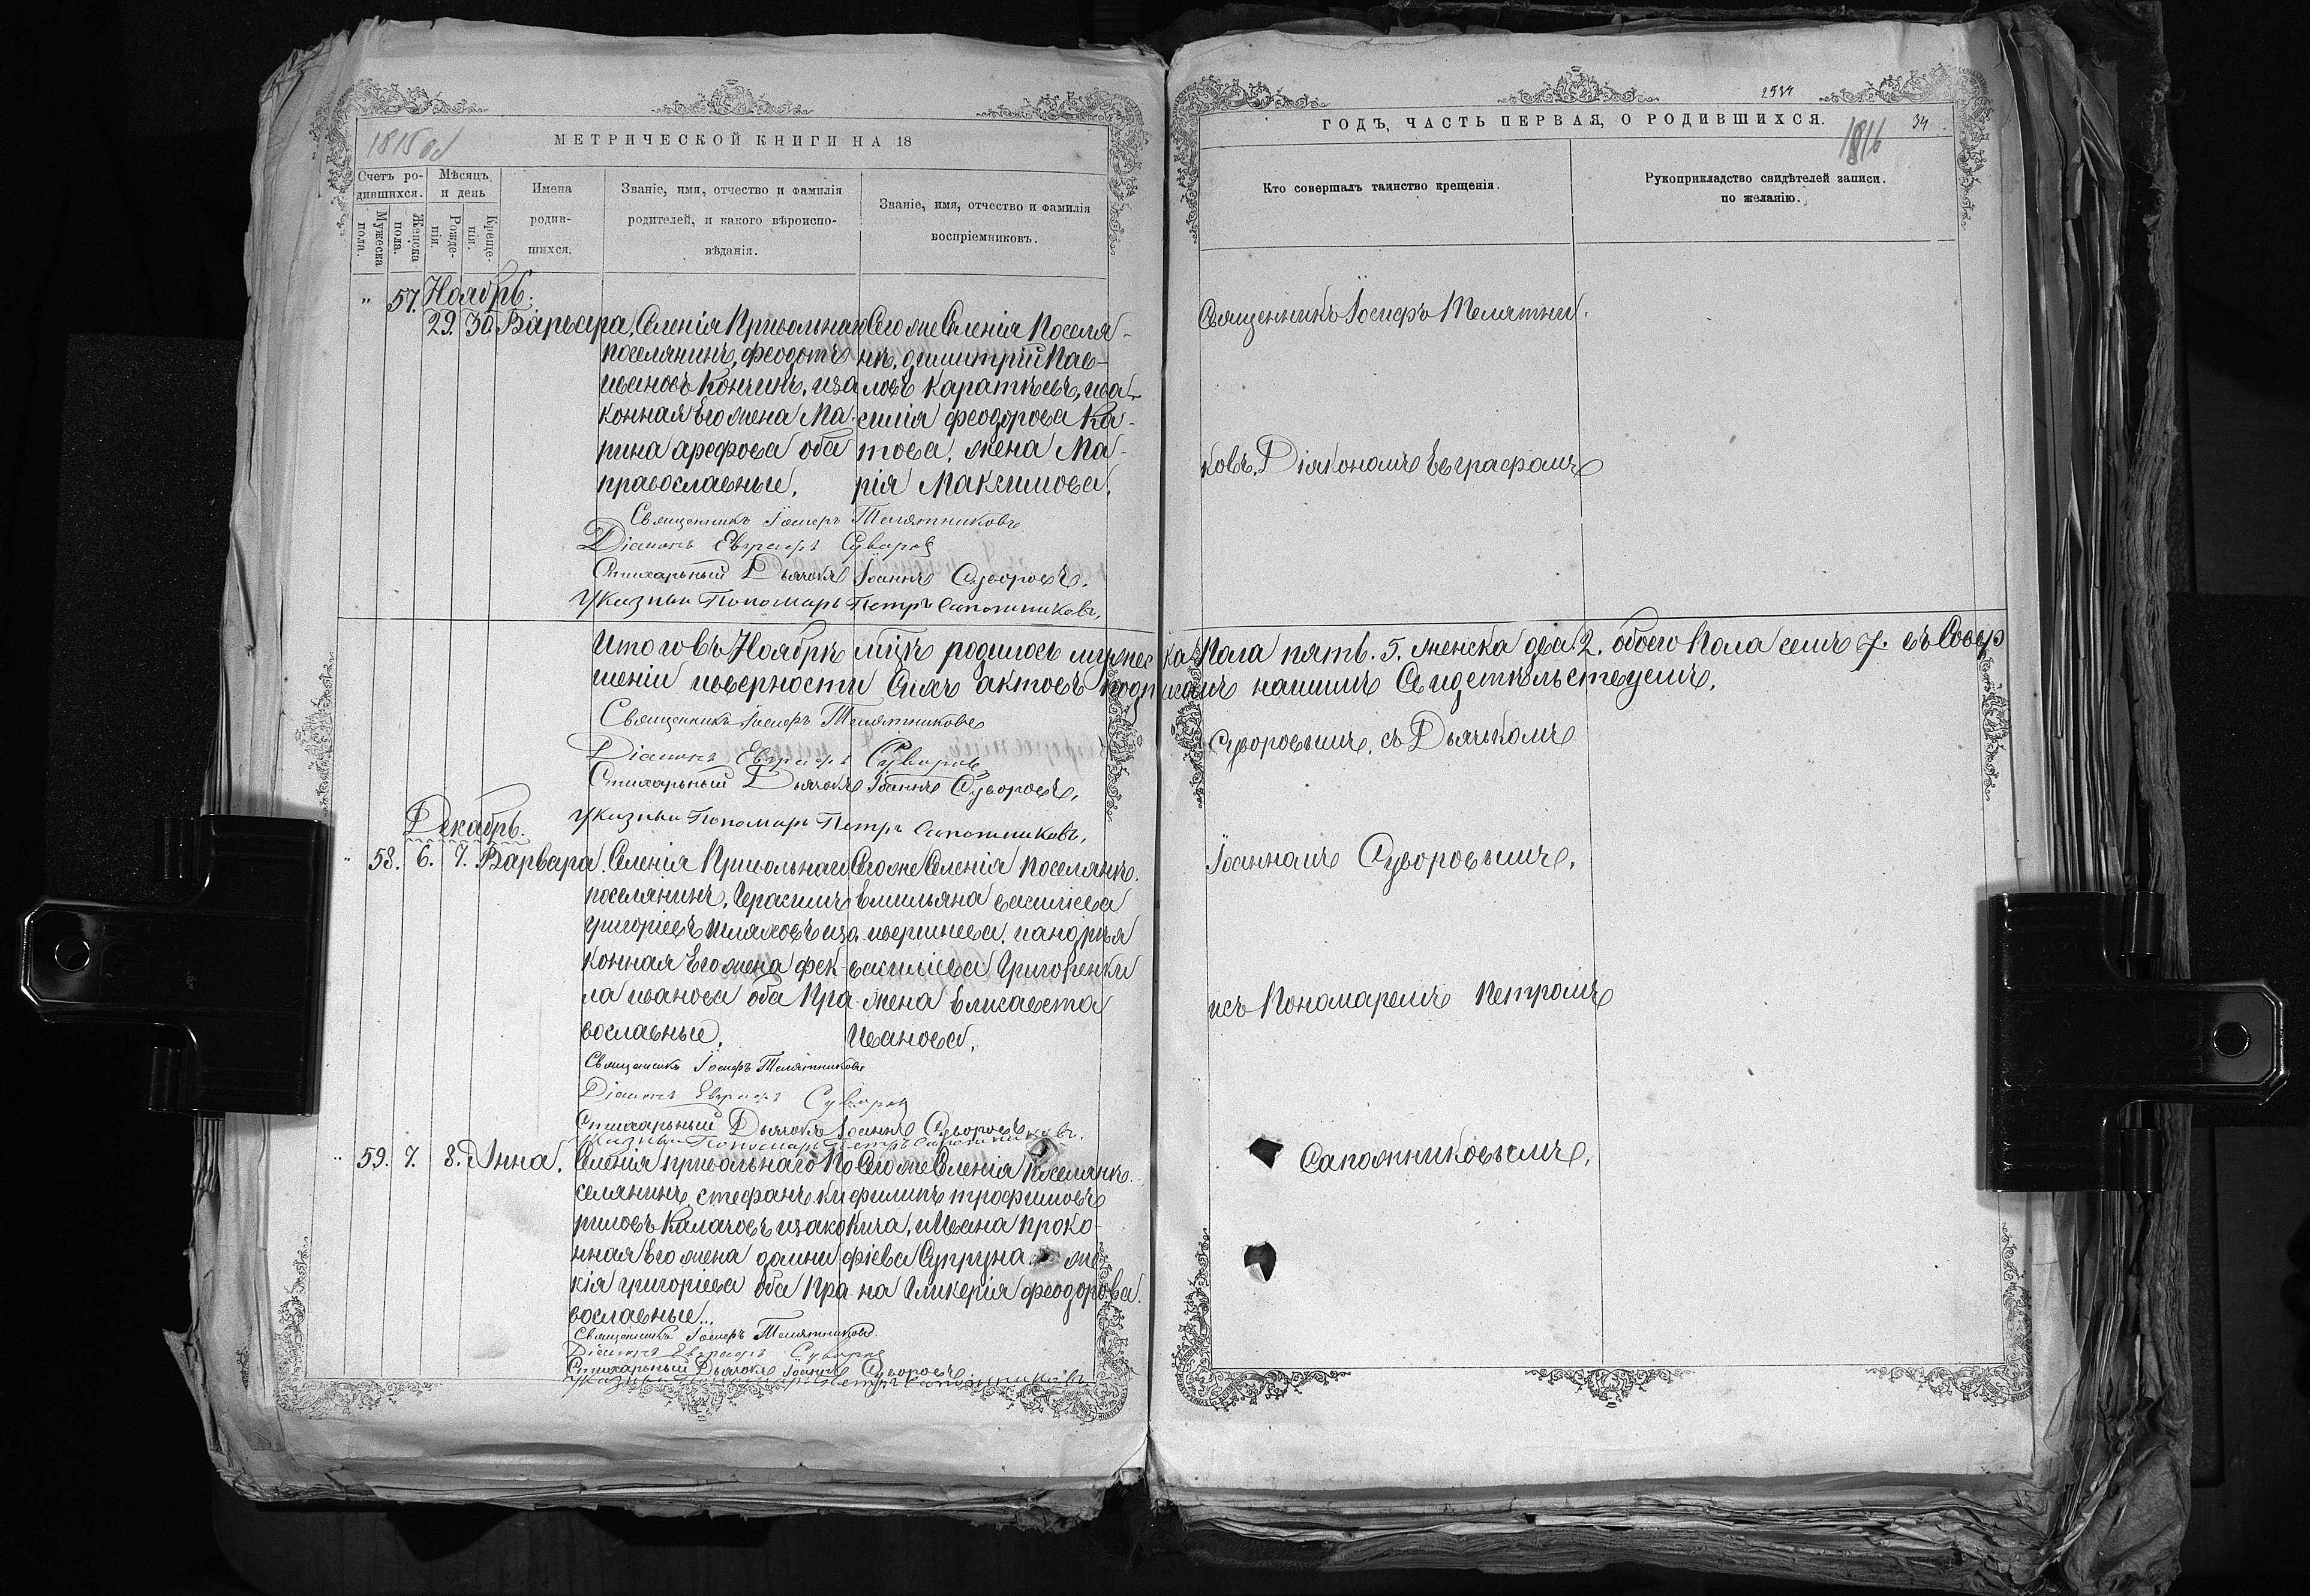 1815 об
МЕТРИЧЕСКОЙ КНИГИ НА 18
Счетъ ро-
дившихся.
Мужеска
пола.
Женска
пола.
Мѣсяцъ
и день
Рожде-
нія.
Креще-
нія.
Имена
родив-
шихся.
Званіе, имя, отчество и фамилія
родителей, и какого вѣроиспо-
вѣданія.
Званіе, имя, отчество и фамилія
воспріемниковъ.
Ноябрь.
" 57. 29. 30. Варвара.
Селенія Привольнаго
поселянинъ, Феодотъ
Ивановъ Кончинъ, иза
конная Его жена Ма-
рина Арефова оба
православные.
Сего же Селенія Поселя-
нкъ. Димитрій Пав-
ловъ Каратѣевъ, ива-
силія Феодорова Ка-
това, жена Ма-
рія Максимова.
Священникъ Іосифъ Телятниковъ
Діаконъ Евграфъ Суворов
Стихарный Дьячокъ Іоаннъ Суворовъ.
Указный Пономарь Петръ Сапожниковъ.
Итого въ Ноябрѣ мцѣ родилось мужеска Пола пять. 5. женска два. 2. обоего Пола семь 7. въ Совер
шеніи иверности Сихъ актовъ подписомъ нашимъ Свидетельствуемъ.
Священникъ Іосифъ Телятниковъ
Діаконъ Евграфъ Суворов
Стихарный Дьячокъ Іоаннъ Суворовъ.
Указный Пономарь Петръ Сапожниковъ.
Декабрь.
" 58. 6. 7. Варвара.
Селенія Привольнаго
поселянинъ, Герасимъ
Григоріевъ Шляховъ иза
конная Его жена Фек-
ла Иванова оба Пра-
вославные.
Сего же Селенія Поселянкъ.
Емильяна Василіева
ивершнева, иандрѣя
Василіева Григоренки
жена Елисавета
Иванова.
Священникъ Іосифъ Телятниковъ
Діаконъ Евграфъ Суворов
Стихарный Дьячокъ Іоаннъ Суворовъ
Указный Пономарь Петръ Сапожниковъ.
" 59. 7. 8. Анна.
Селенія привольнаго По
селянинъ, Стефанъ Ки
риловъ Калачовъ изако
нная Его жена Домни
кія Григоріева оба Пра
вославные..
Сего же Селенія Поселянкъ.
Филипъ Трофимовъ
Кича, иИвана Проко-
фіева Супруна же
на Гликерія Феодорова.
Священникъ Іосифъ Телятниковъ.
Діаконъ Евграфъ Суворов
Стихарный Дьячокъ Іоаннъ Суворовъ
Указный Пономарь Петръ Сапожниковъ
34
1816
ГОДЪ, ЧАСТЬ ПЕРВАЯ, О РОДИВШИХСЯ.
Кто совершалъ таинство крещенія.
Рукоприкладство свидѣтелей записи.
по желанію.
Священникъ Іосифъ Телятни.
ковъ, Діякономъ Евграфомъ
Суворовымъ, съ Дьячькомъ
Іоанномъ Суворовымъ,
исъ Пономаремъ Петромъ
Сапожниковымъ.